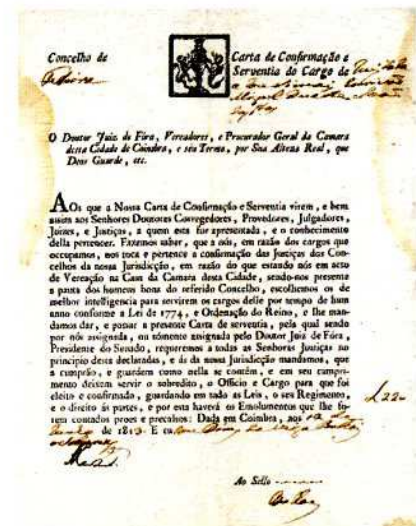 Concelho de
Carta de Confirmação e
Serventia do Cargo de
O Doutor Juiz de Fóra, Vereadores, e Procurador Geral da Camara
desta Cidade de Coimbra, e seu Termo, por Sua Alteza Real, que
Deos Guarde, etc.
AOs que a Nossa Carta de Confirmação e Serventia virem, e bem
assim aos Senhores Doutores Corregedores, Provedores, Julgadores,
Juizes, e Justiças, a quem esta for apresentada, e o conhecimento
della pertencer. Fazemos saber, que a nós, em razão dos cargos que
occupamos, nos toca e pertence a confirmação das Justiças dos Con-
celhos da nossa Jurisdicção, em razão do que estando nós em acto
de Vereação na Casa da Camara desta Cidade, sendo-nos presente
a pauta dos homens bons do referido Concelho, escolhemos os de
melhor intelligencia para servirem os cargos delle por tempo de hum
anno conforme a Lei de 1774, e Ordenação do Reino, e lhe man-
damos dar, e passar a presente Carta de serventia, pela qual sendo
por nós assignada, ou sómente assignada pelo Doutor Juiz de Fóra,
Presidente do Senado, requeremos a todas as Senhoras Justiças no
principio desta declaradas, e ás da nossa Jurisdicção mandamos, que
a cumprão, e guardem como nella se contém, e em seu cumpri-
mento deixem servir o sobredito, o Officio e Cargo para que foi
eleito e confirmado, guardando em tudo as Leis, o seu Regimento,
e o direito ás partes, e por esta haverá os Emolumentos que lhe fo-
rem contados proes e precalsos: Dada em Coimbra, aos
de 181 E eu
Ao Sello